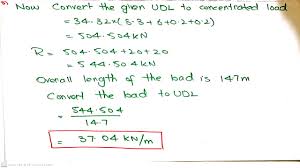 Now Convert the given UDL to concentrated load
= 34.32×(3.3+6+0.2+0.2)
= 504.504 kN
R = 504.504+20+20
= 544.504 kN
Overall length of the bad is 147m
Convert the bad to UDL
= 544.504
14.7
= 37.04 kN/m